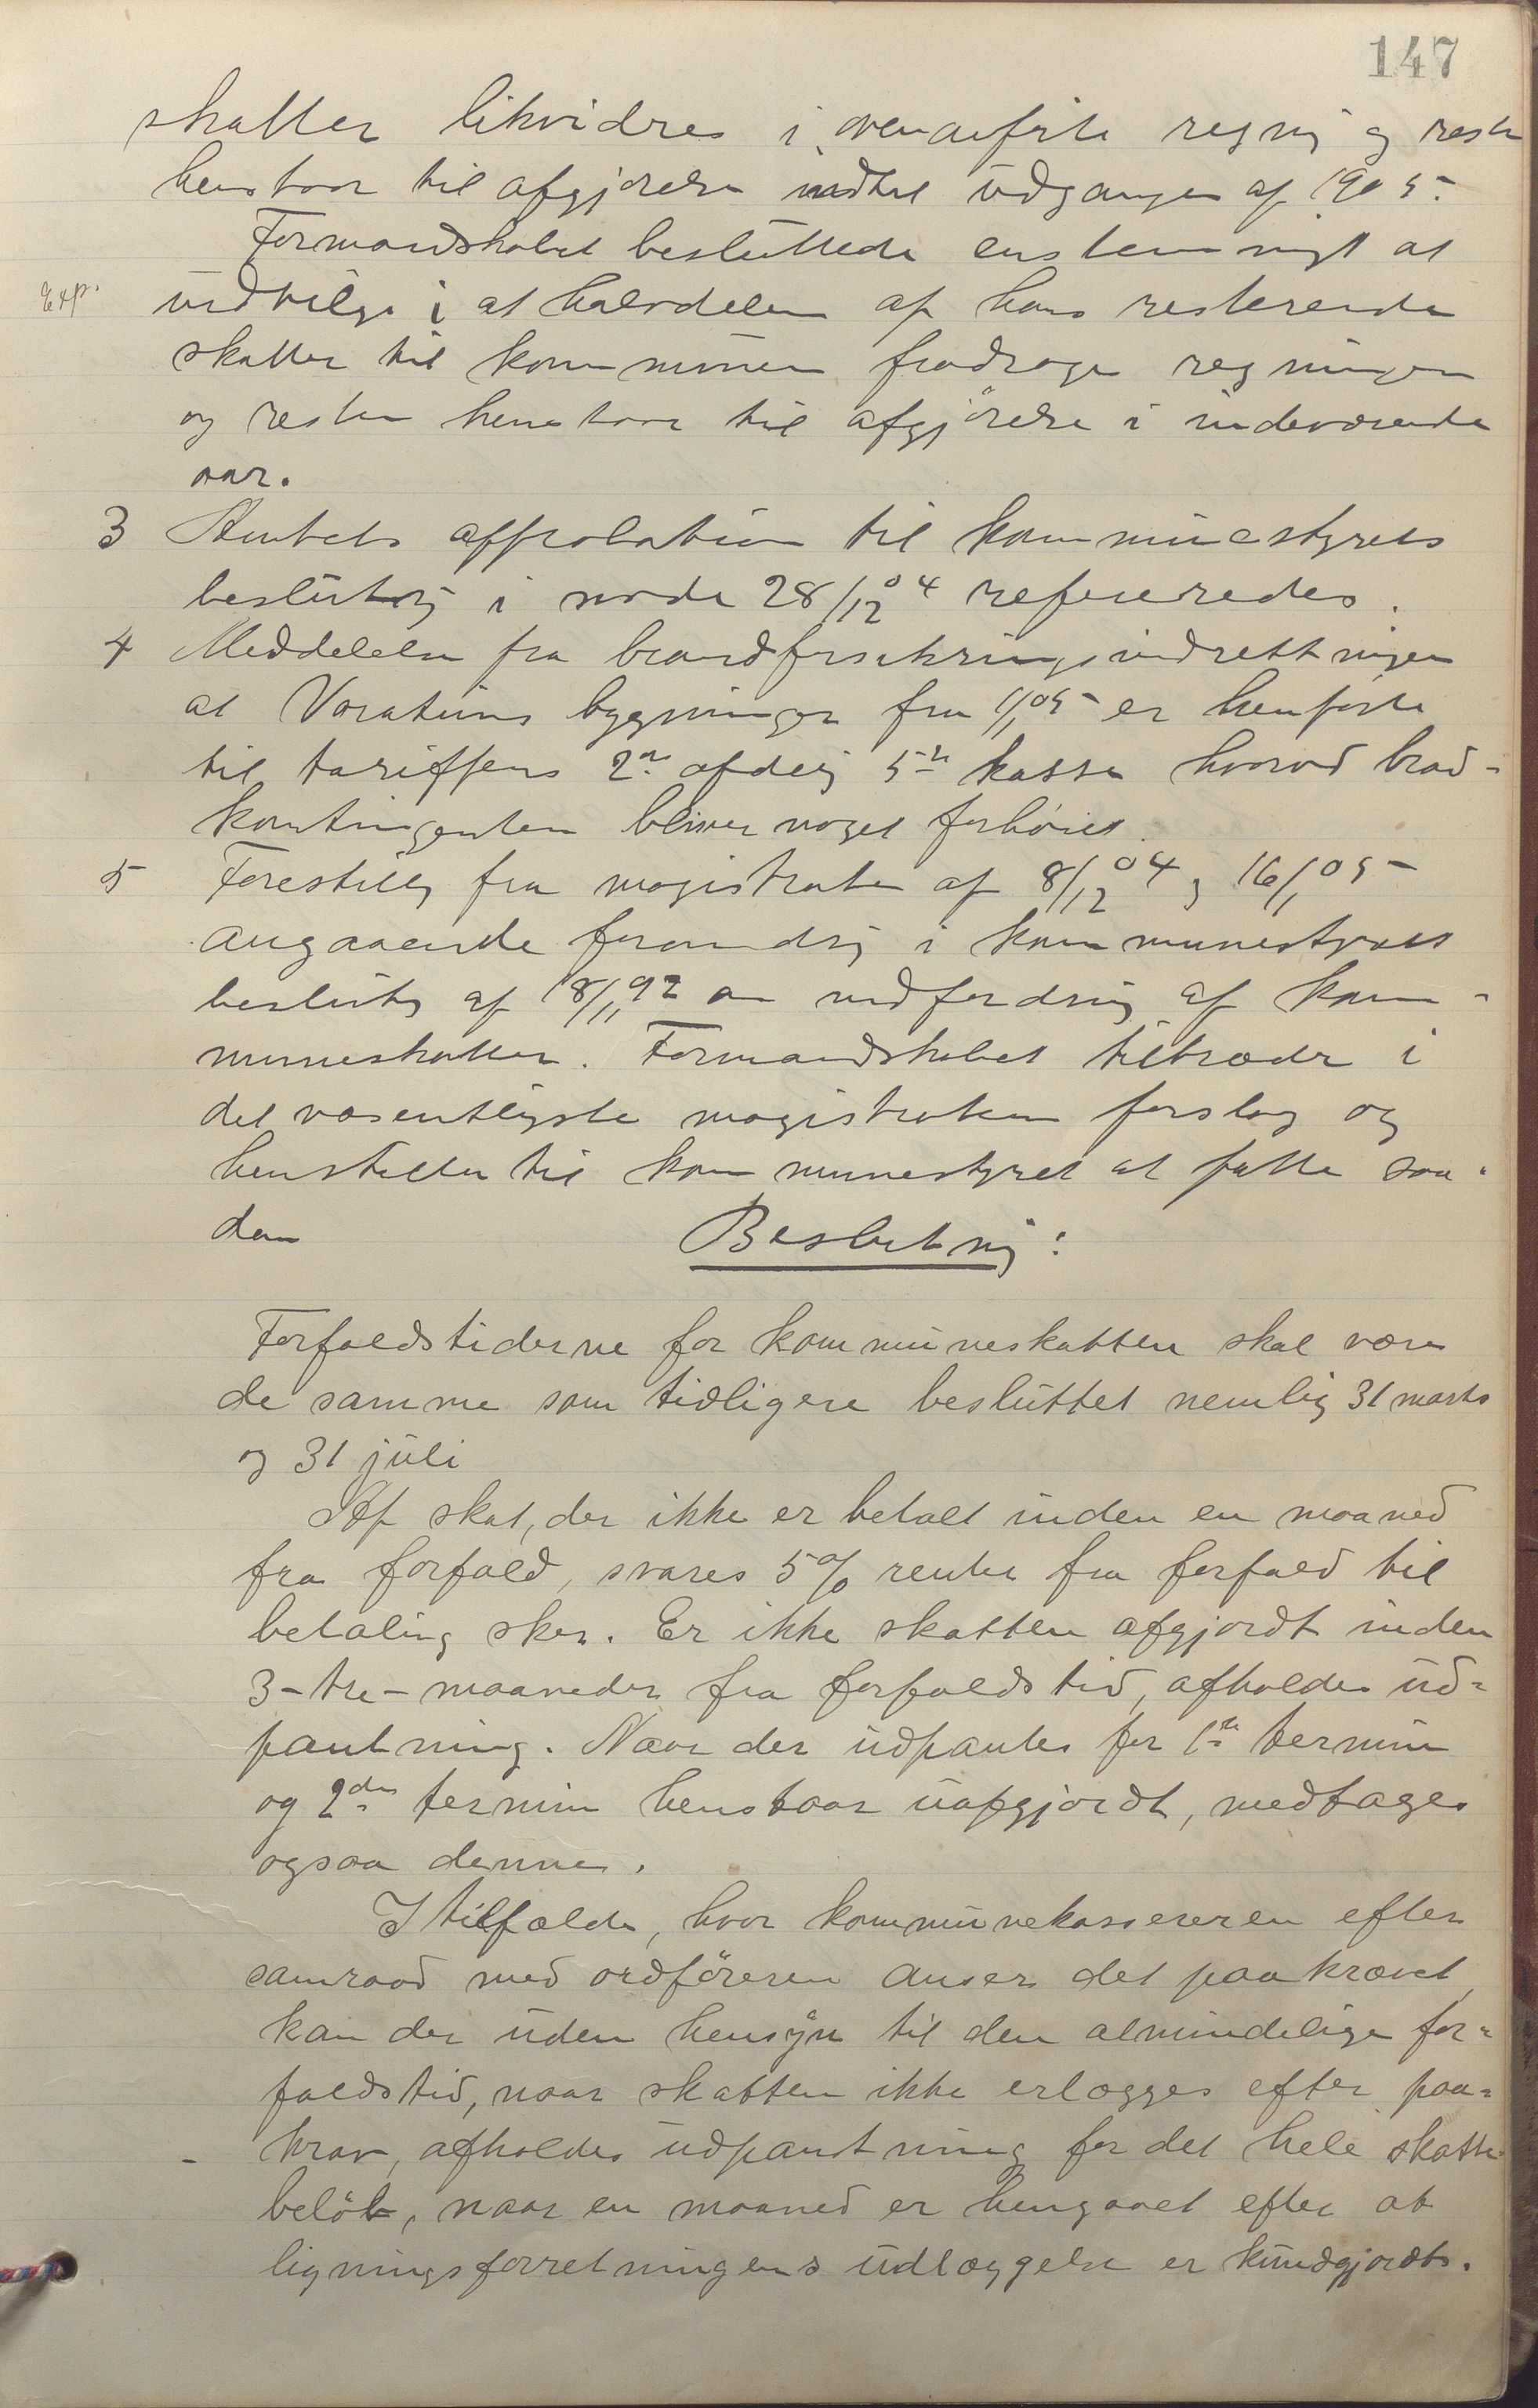 147
skatter likvidres i ovenanførte regning og resten
henstaar til afgjørelse indtil udgangen af 1905.
Formandskabet besluttede enstemmigt at
Exp. indvilge i at halvdelen af hans resterende
skatter til kommunen fradrages regningen
og resten henstaar til afgjörelse i indeværende
aar.
3 Amtets approbation til kommunestyrets
beslutning i møde 28/12 04 refereredes.
4 Meddelelse fra brandforsikringsindretningen
at Vorateins bygninger fra 1/1 05 er henførte
til tariffens 2den afdeling 5te klasse hvorved brand-
kontingenten bliver noget forhöiet.
5 Forestilling fra magistraten af 8/12 04 og 16/1 05
angaaende forandring i kommunestyrets
beslutning af 18/11 92 om indfordring af kom-
muneskatten. Formandskabet tiltræder i
det væsentligste magistratens forslag og
henstiller til kommunestyret at fatte saa-
dan Beslutning:
Forfaldstiderne for kommuneskatten skal være
de samme som tidligere besluttet nemlig 31 marts
og 31 juli
Af skat, der ikke er betalt inden en maaned
fra forfald, svares 5 % rente fra forfald til
betaling sker. Er ikke skatten afgjordt inden
3-tre-maaneder fra forfaldstid, afholdes ud-
pantning. Naar der udpantes for 1ste termin
og 2den termin henstaar uafgjordt, medtages
ogsaa denne.
I tilfælde, hvor kommunekassereren efter
samraad med ordföreren anser det paakrævet,
kan der uden hensyn til den almindelige for-
faldstid, naar skatten ikke erlægges efter paa-
krav, afholdes udpantning for det hele skatte-
belöb, naar en maaned er hengaaet efter at
ligningsforretningens udlæggelse er kundgjordt.